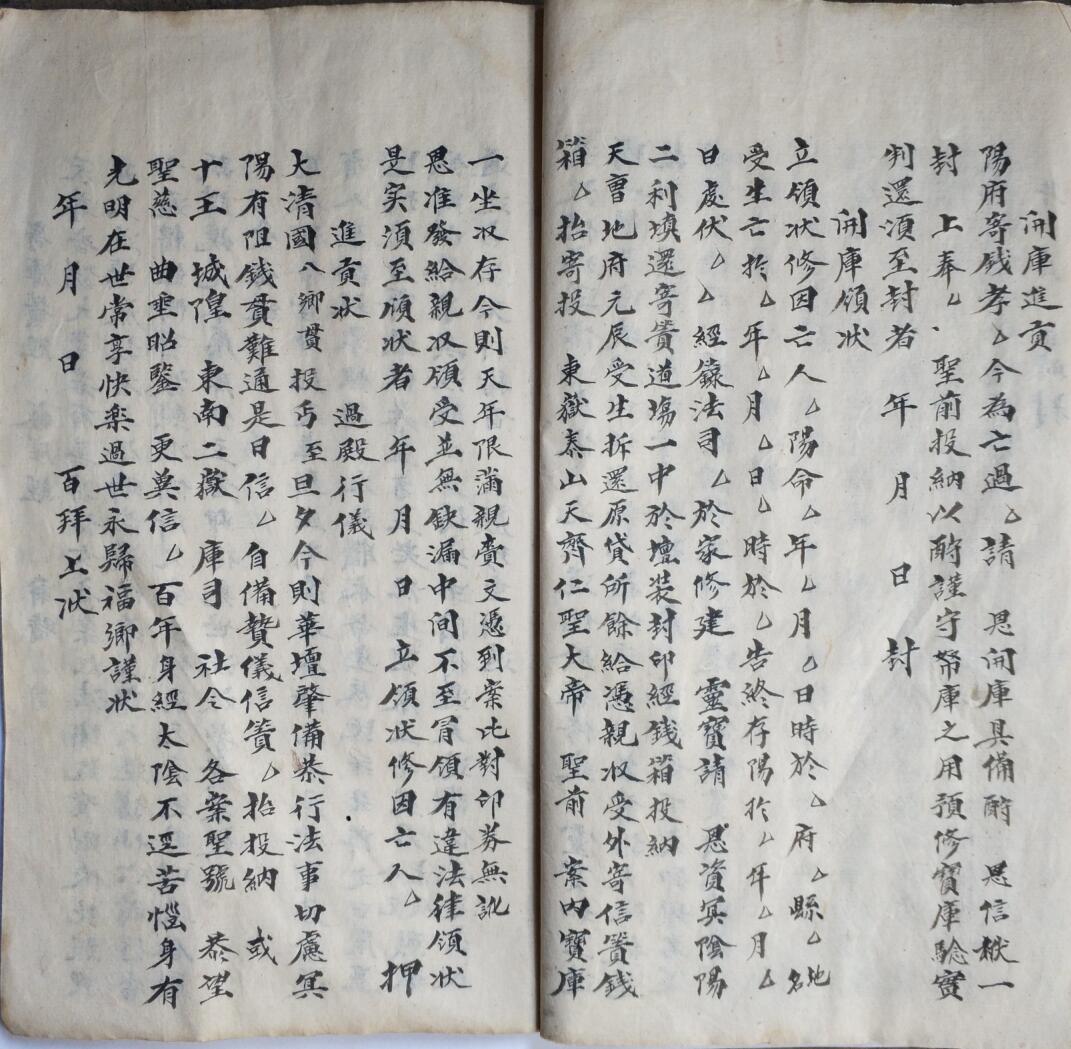 開庫進貢
陽府寄錢孝厶今為亡過厶請 恩開庫具備酧 恩信 一
封 上奉厶 聖前投納以酧謹守帑庫之用預修寶庫驗實
判還須至封者 年 月 日 封
開庫領狀
立領狀修因亡人厶陽命厶年厶月厶日時於厶府厶縣厶地名
受生亡扵厶年厶月厶日厶時於厶告終存陽扵厶年厶月厶
日處伏厶厶經籙法司厶於家修建 靈寶請 恩資冥陰陽
二利填還寄貴道塲一中於壇装封印經錢箱投納
天曹地府元辰受生拆還原貸所餘給憑親収受外寄信篢錢
箱厶抬寄投 東嶽泰山天齊仁聖大帝 聖前 案內寶庫
一坐収存今則天年限滿親賫文憑到案比對印券無訛
恩准發給親収領受並無缺漏中间不至冐領有違法律領狀
是实須至領狀者 年月日 立領狀修因亡人厶 押
進貢狀 過殿行儀
大清國八鄉貫投丐至旦夕今則華壇肇備恭行法事切慮冥
陽有阻錢貫難通是日信厶自備贄儀信篢厶抬投納 或
十王城隍 東南二嶽 庫司 社令 各案聖號 恭望
聖慈曲垂昭鑒 更兾信厶百年身經太陰不逕苦惱身有
光明在世常享快楽過世永歸福鄉謹狀
年 月 日 百拜上狀